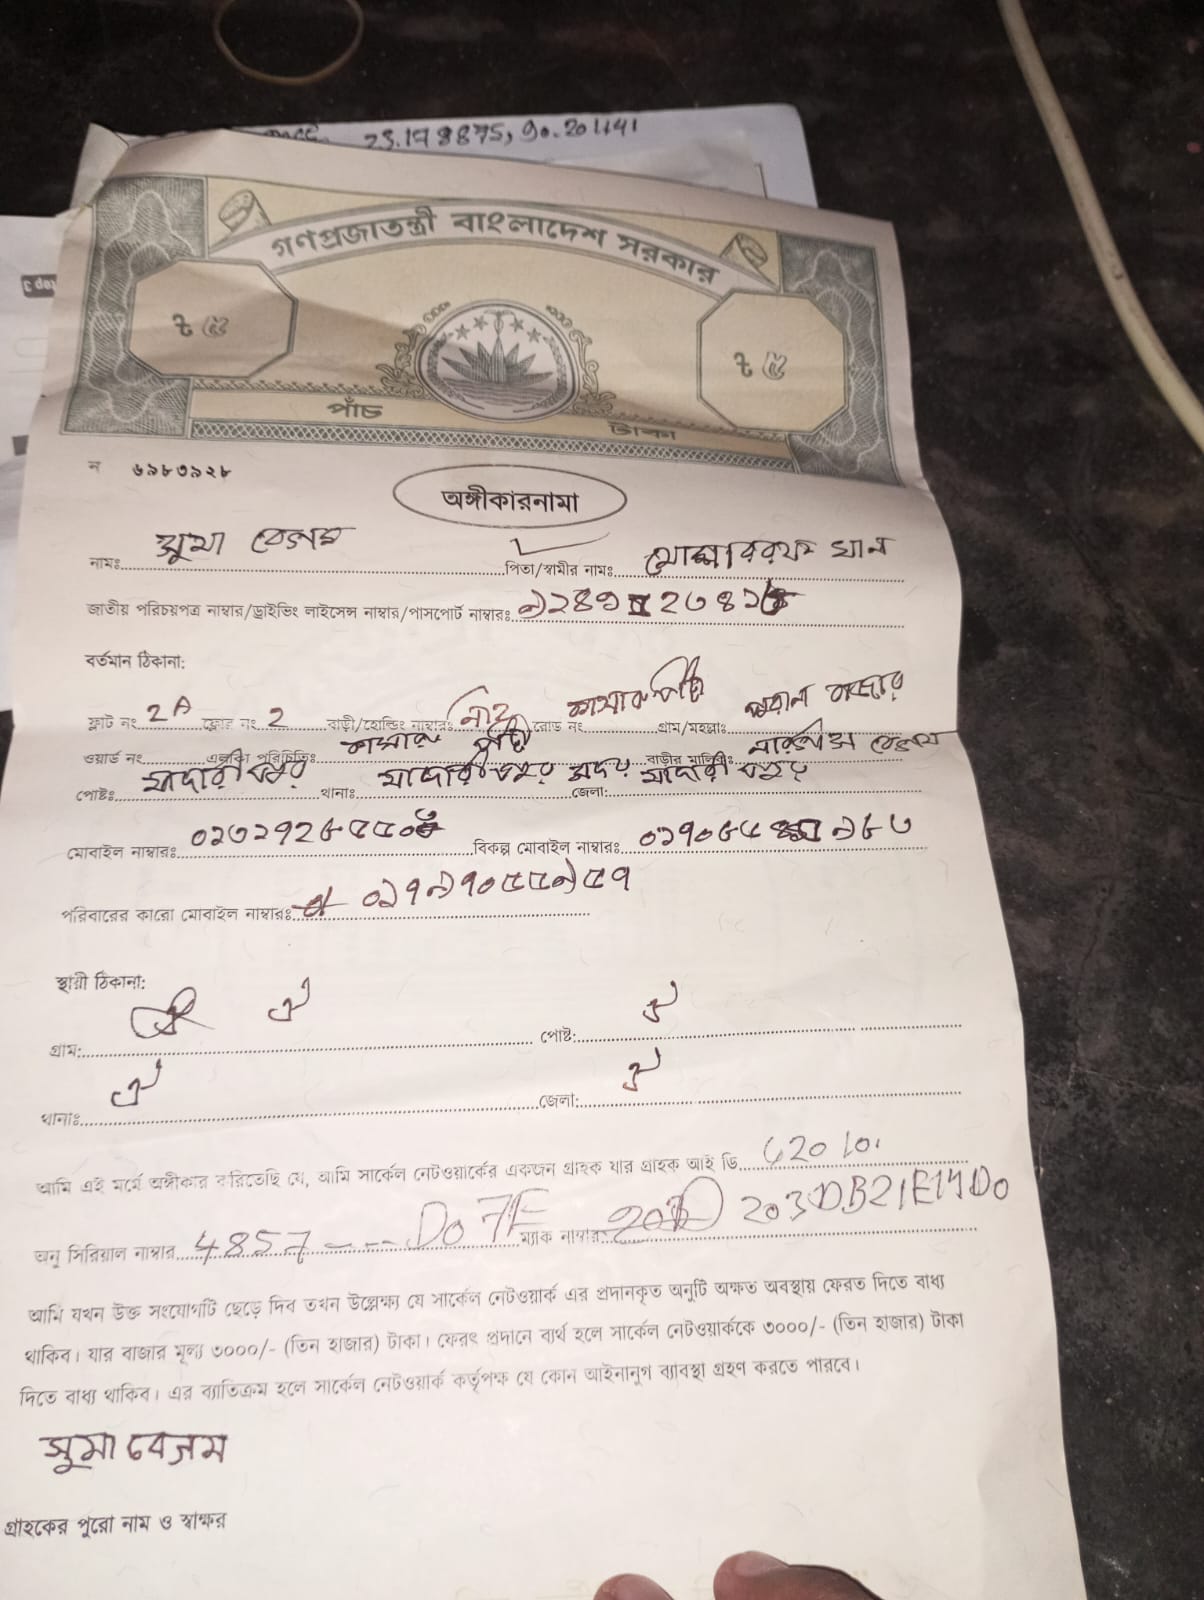 23.178875, 90.201141
গণপ্রজাতন্ত্রী বাংলাদেশ সরকার
৳ ৫ ৳ ৫
পাঁচ টাকা
ন ৬৯৮৩৯২৮
অঙ্গীকারনামা
নামঃ সুমা বেগম পিতা/স্বামীর নামঃ খান
জাতীয় পরিচয়পত্র নাম্বার/ড্রাইভিং লাইসেন্স নাম্বার/পাসপোর্ট নাম্বারঃ
বর্তমান ঠিকানা:
ফ্লাট নং 2A ফ্লোর নং 2 বাড়ী/হোল্ডিং নাম্বারঃ রোড নং গ্রাম/মহল্লাঃ পুরান বাজার
ওয়ার্ড নং এলাকা পরিচিতিঃ বাড়ীর মালিকঃ বেগম
পোষ্টঃ মাদারীপুর থানাঃ মাদারীপুর সদর জেলা: মাদারীপুর
মোবাইল নাম্বারঃ বিকল্প মোবাইল নাম্বারঃ
পরিবারের কারো মোবাইল নাম্বারঃ ০১৭৯৭০৫৫৯৫৭
স্থায়ী ঠিকানা:
গ্রাম: ঐ পোষ্ট: ঐ
থানাঃ ঐ জেলা: ঐ
আমি এই মর্মে অঙ্গীকার করিতেছি যে, আমি সার্কেল নেটওয়ার্কের একজন গ্রাহক যার গ্রাহক আই ডি
অনু সিরিয়াল নাম্বার 4857 --- D07F ম্যাক নাম্বার
আমি যখন উক্ত সংযোগটি ছেড়ে দিব তখন উল্লেক্ষ্য যে সার্কেল নেটওয়ার্ক এর প্রদানকৃত অনুটি অক্ষত অবস্থায় ফেরত দিতে বাধ্য
থাকিব। যার বাজার মূল্য ৩০০০/- (তিন হাজার) টাকা। ফেরৎ প্রদানে ব্যর্থ হলে সার্কেল নেটওয়ার্ককে ৩০০০/- (তিন হাজার) টাকা
দিতে বাধ্য থাকিব। এর ব্যাতিক্রম হলে সার্কেল নেটওয়ার্ক কর্তৃপক্ষ যে কোন আইনানুগ ব্যাবস্থা গ্রহণ করতে পারবে।
সুমা বেগম
গ্রাহকের পুরো নাম ও স্বাক্ষর